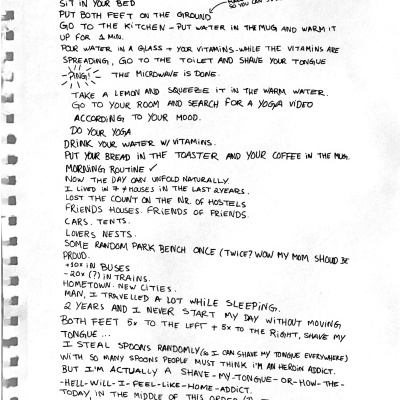 SIT IN YOUR BED
PUT BOTH FEET ON THE GROUND
GO TO THE KITCHEN - PUT WATER IN THE MUG AND WARM IT
UP FOR 1 MIN.
POUR WATER IN A GLASS + YOUR VITAMINS - WHILE THE VITAMINS ARE
SPREADING, GO TO THE TOILET AND SHAVE YOUR TONGUE
- PING! - THE MICROWAVE IS DONE.
TAKE A LEMON AND SQUEEZE IT IN THE WARM WATER.
GO TO YOUR ROOM AND SEARCH FOR A YOGA VIDEO
ACCORDING TO YOUR MOOD.
DO YOUR YOGA
DRINK YOUR WATER W/ VITAMINS.
PUT YOUR BREAD IN THE TOASTER AND YOUR COFFEE IN THE MUG.
MORNING ROUTINE ✓
NOW THE DAY CAN UNFOLD NATURALLY.
I LIVED IN 7 HOUSES IN THE LAST 2 YEARS.
LOST THE COUNT ON THE NR. OF HOSTELS
FRIENDS HOUSES. FRIENDS OF FRIENDS.
CARS. TENTS.
LOVERS NESTS.
SOME RANDOM PARK BENCH ONCE (TWICE? WOW MY MOM SHOULD BE
PROUD.
+10x IN BUSES
- 20x (?) IN TRAINS.
HOMETOWN. NEW CITIES.
MAN, I TRAVELLED A LOT WHILE SLEEPING.
2 YEARS AND I NEVER START MY DAY WITHOUT MOVING
BOTH FEET 5x TO THE LEFT + 5x TO THE RIGHT, SHAVE MY
TONGUE ...
I STEAL SPOONS RANDOMLY (SO I CAN SHAVE MY TONGUE EVERYWHERE)
WITH SO MANY SPOONS PEOPLE MUST THINK I'M AN HEROIN ADDICT.
BUT I'M ACTUALLY A SHAVE - MY - TONGUE - OR - HOW - THE -
- HELL - WILL - I - FEEL - LIKE - HOME - ADDICT.
TODAY, IN THE MIDDLE OF THIS ORDER